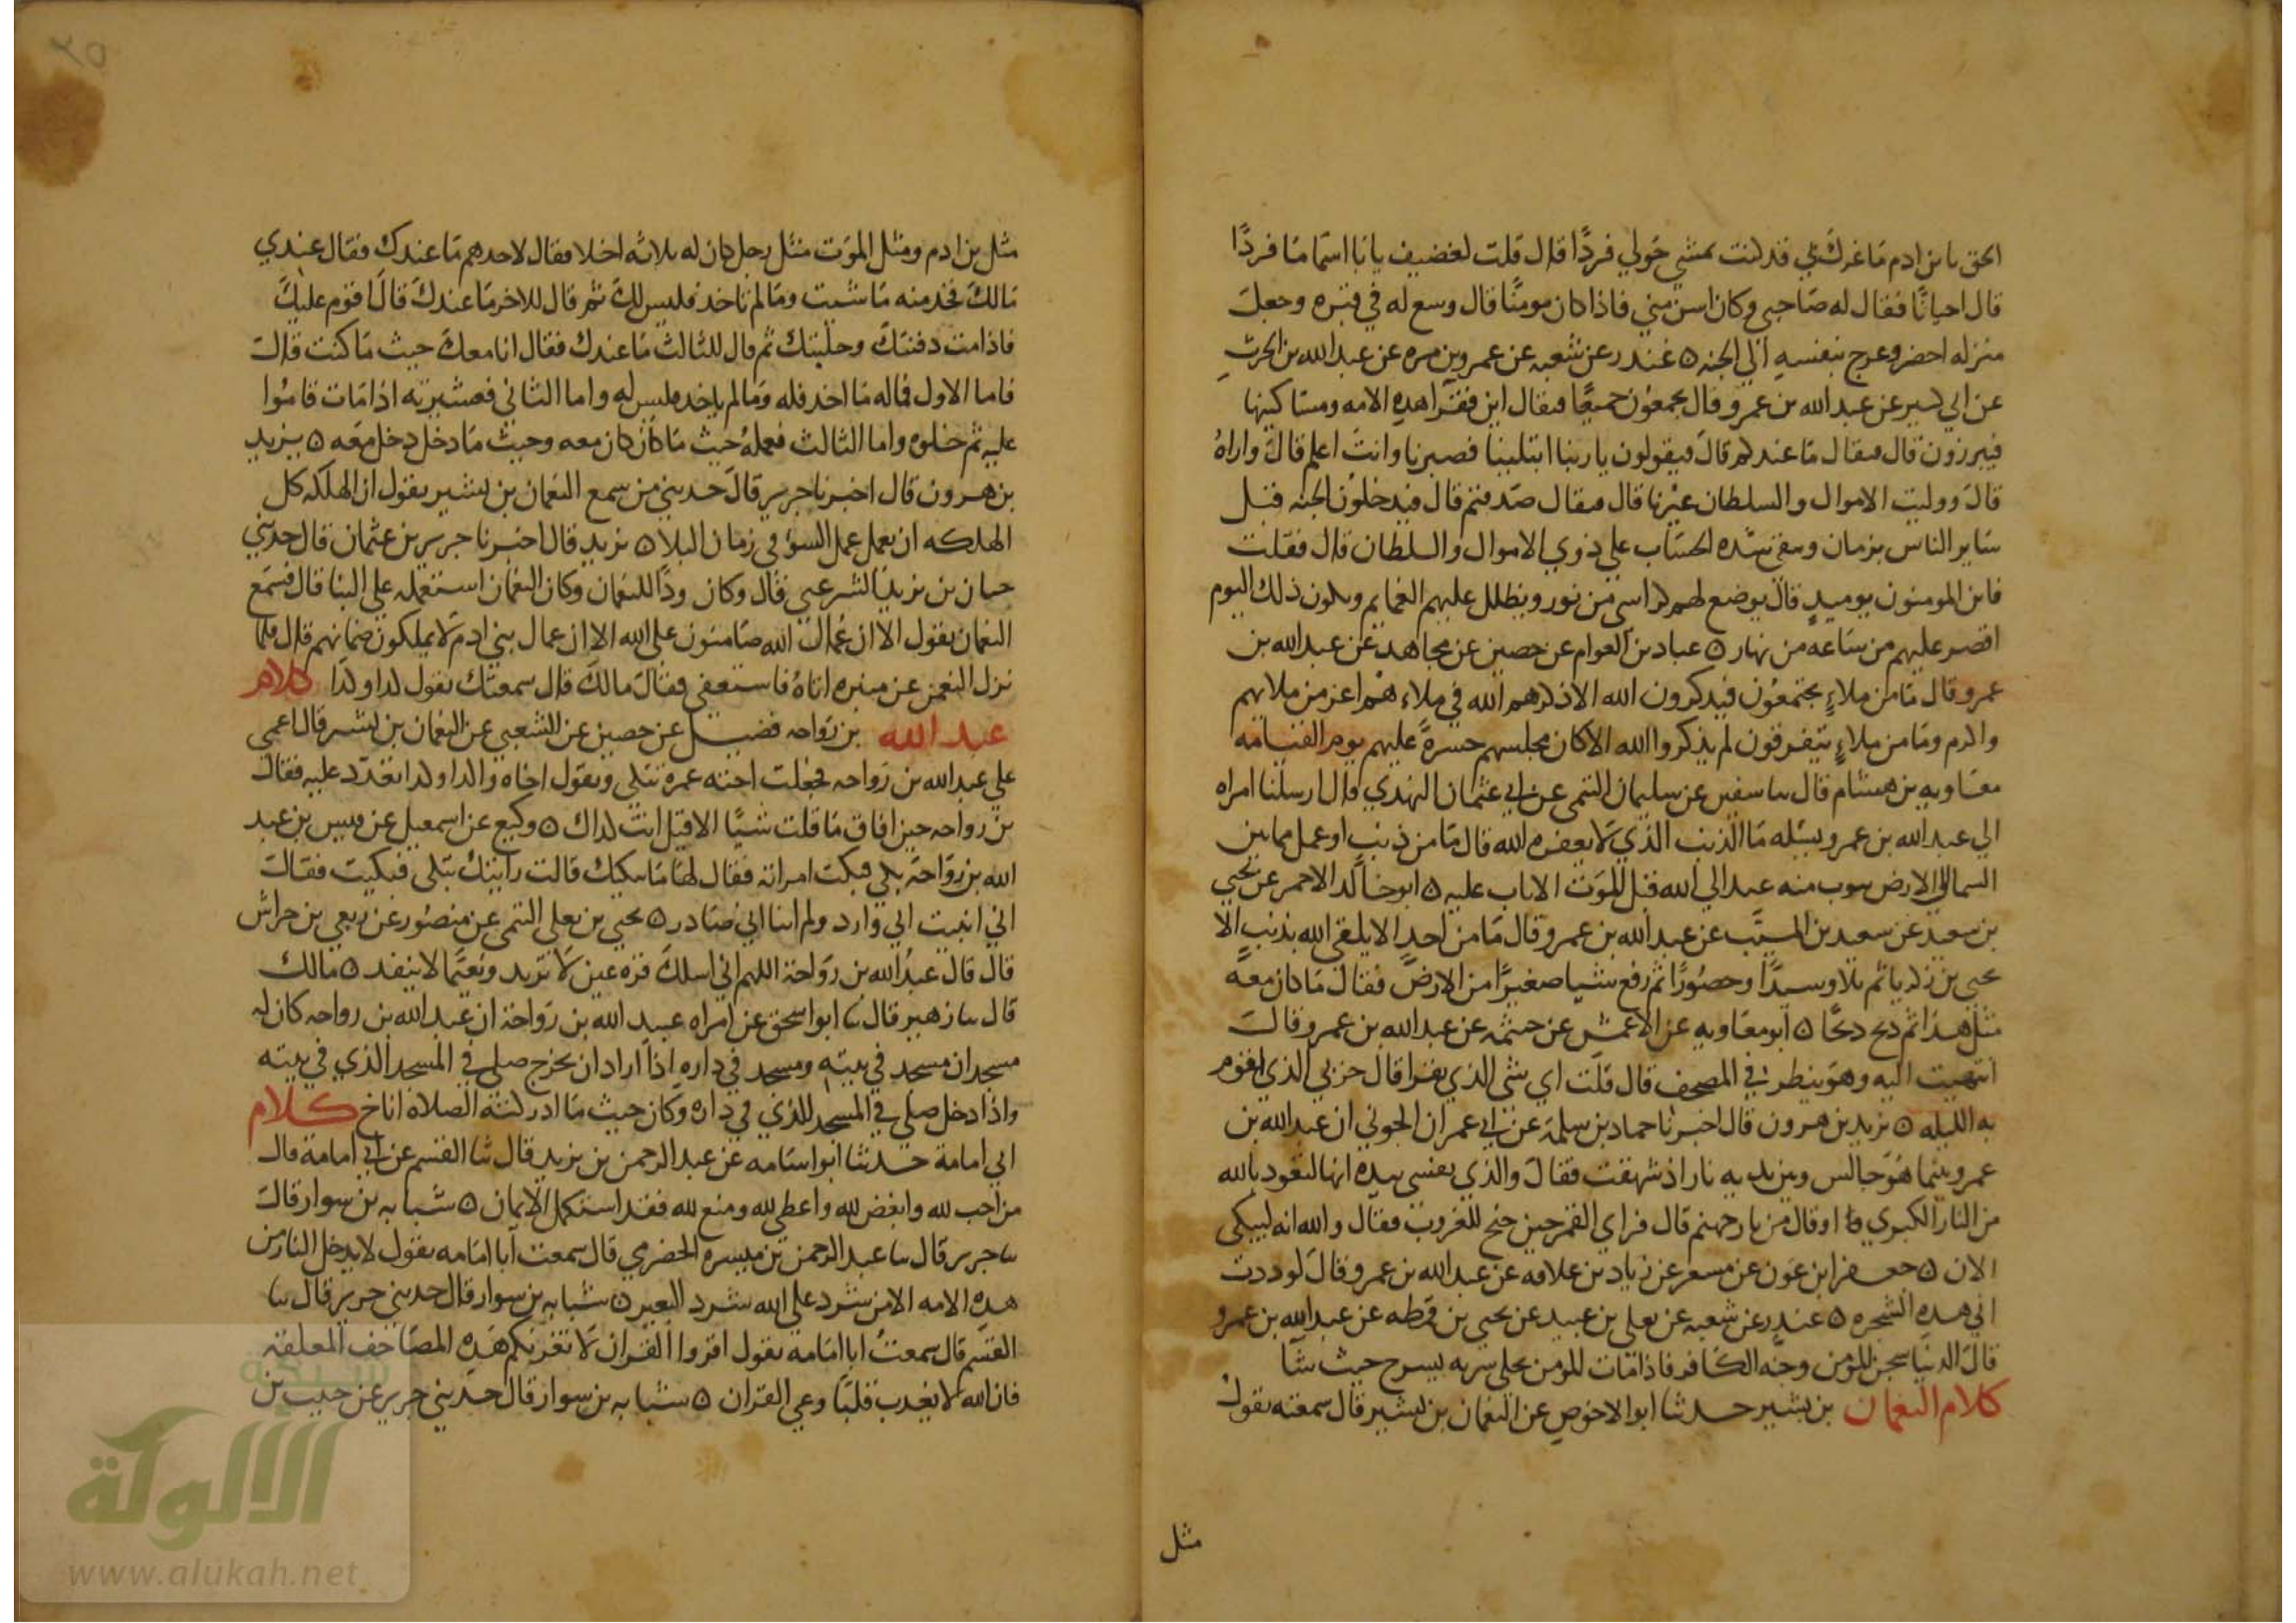 الحق يا بن ادم ما غرك بي قد كنت تمشي حولي فردًا قال قلت لغضيف يا با اسما ما فردًا
قال احيانًا فقال له صاحبي وكان اسن مني فاذا كان مومنًا قال وسع له في قبره وجعل
منزله اخضر وعرج بنفسه الي الجنه ه غندر عن شعبه عن عمرو بن مره عن عبد الله بن الحرث
عن ابي كثير عن عبد الله بن عمرو قال يجمعون جميعًا فيقال اين فقرا هذه الامه ومساكينها
فيبرزون قال فيقال ما عندكم قال فيقولون يا ربنا ابتلينا فصبرنا وانت اعلم قال واراه
قال ووليت الاموال والسلطان غيرنا قال فيقال صدقتم قال فيدخلون الجنه قبل
ساير الناس بزمان وتبقي شده الحساب علي ذوي الاموال والسلطان قال فقلت
فاين المومنون يوميذ قال يوضع لهم كراسي من نور ويظلل عليهم الغمايم ويكون ذلك اليوم
اقصر عليهم من ساعه من نهار ه عباد بن العوام عن حصين عن مجاهد عن عبد الله بن
عمرو قال ما من ملاءٍ يجتمعون فيذكرون الله الا ذكرهم الله في ملاء هم اعز من ملايهم
واكرم وما من ملاءٍ يتفرقون لم يذكروا الله الا كان مجلسهم حسرةً عليهم يوم القيامه
معاويه بن هشام قال نا سفين عن سليمان التيمي عن ابي عثمان النهدي قال ارسلنا امراه
الي عبد الله بن عمرو يسئله ما الذنب الذي لا يغفره الله قال ما من ذنب او عمل مما بين
السما الي الارض يتوب منه عبد الي الله قبل الموت الا تاب عليه ه ابو خالد الاحمر عن يحيي
بن سعيد عن سعيد بن المسيب عن عبد الله بن عمرو قال ما من احدٍ الا يلقي الله بذنبٍ الا
يحيي بن زكريا ثم تلا وسيدًا وحصورًا ثم رفع شيا صغيرًا من الارض فقال ما كان معه
مثل هذا ثم ذبح ذبحًا ه ابو معاويه عن الاعمش عن خيثمه عن عبد الله بن عمرو قال
انتهيت اليه وهو ينظر في المصحف قال قلت اي شي الذي تقرا قال حزبي الذي اقوم
به الليله ه يزيد بن هرون قال اخبرنا حماد بن سلمة عن ابي عمران الجوني ان عبد الله بن
عمرو بينما هو جالس وبين يديه نار اذ شهقت فقال والذي نفسي بيده انها لتعوذ بالله
من النار الكبري قال او قال من نار جهنم قال فراي القمر حين جنح للغروب فقال والله انه ليبكي
الان ه جعفر ابن عون عن مسعر عن زياد بن علاقه عن عبد الله بن عمرو قال لوددت
اني هذه الشجره ه غندر عن شعبه عن يعلي بن عبيد عن يحيي بن قمطه عن عبد الله بن عمرو
قال الدنيا سجن المومن وجنه الكافر فاذا مات المومن يخلي سربه يسرح حيث شا
كلام النعمان بن بشير حدثنا ابو الاحوص عن النعمان بن بشير قال سمعته يقول
مثل
مثل بن ادم ومثل الموت مثل رجل كان له ثلاثه اخلا فقال لاحدهم ما عندك فقال عندي
مالك فخذ منه ما شيت وما لم تاخذ فليس لك ثم قال للاخر ما عندك قال اقوم عليك
فاذا مت دفنتك وخليتك ثم قال للثالث ما عندك فقال انا معك حيث ما كنت قال
فاما الاول فماله ما اخذ فله وما لم ياخذ فليس له واما الثاني فعشيرته اذا مات قاموا
عليه ثم خلوه واما الثالث فعمله حيث ما كان كان معه وحيث ما دخل دخل معه ه يزيد
بن هرون قال اخبرنا جرير قال حدثني من سمع النعمان بن بشير يقول ان الهلكه كل
الهلكه ان يعمل عمل السو في زمان البلا ه يزيد قال اخبرنا جرير بن عثمان قال حدثني
حبان بن يزيد الشرعبي قال وكان ودًا للنعمان وكان النعمان استعمله علي البنا قال فسمع
النعمان يقول الا ان عمال الله ضامنون علي الله الا ان عمال بني ادم لا يملكون ضمانهم قال فلما
نزل النعمن عن منبره اتاه فاستعفي فقال مالك قال سمعتك تقول كذا وكذا كلام
عبد الله بن رواحه فضيل عن حصين عن الشعبي عن النعمان بن بشير قال اغمي
علي عبد الله بن رواحه فجعلت اخته عمره تبكي وتقول اخاه واكذا وكذا تعدد عليه فقال
بن رواحه حين افاق ما قلت شيًا الا قيل انت كذاك ه وكيع عن اسمعيل عن قيس بن عبد
الله بن رواحة بكي فبكت امراته فقال لها ما يبكيك قالت رايتك تبكي فبكيت فقال
اني انبيت اني وارد ولم انبا اني صادر ه يحيي بن يعلي التيمي عن منصور عن ربعي بن حراش
قال قال عبد الله بن رواحة اللهم اني اسلك قره عين لا ترتد ونعيمًا لا ينفد ه مالك
قال نا زهير قال نا ابو اسحق عن امراه عبد الله بن رواحة ان عبد الله بن رواحه كان له
مسجدان مسجد في بيته ومسجد في داره اذا اراد ان يخرج صلي في المسجد الذي في بيته
واذا دخل صلي في المسجد الذي في داره وكان حيث ما ادركته الصلاه اناخ كلام
ابي امامة حدثنا ابو اسامه عن عبد الرحمن بن يزيد قال ثنا القسم عن ابي امامة قال
من احب لله وابغض لله واعطي لله ومنع لله فقد استكمل الايمان ه شبابه بن سوار قال
نا جرير قال نا عبد الرحمن بن ميسره الحضرمي قال سمعت ابا امامه يقول لا يدخل النار من
هذه الامه الا من شرد علي الله شرد البعير ه شبابه بن سوار قال حدثني جرير قال نا
القسم قال سمعت ابا امامه يقول اقروا القران لا تغرنكم هذه المصاحف المعلقه
فان الله لا يعذب قلبًا وعي القران ه شبابه بن سوار قال حدثني جرير عن حبيب بن
شبكة
الألوكة
www.alukah.net